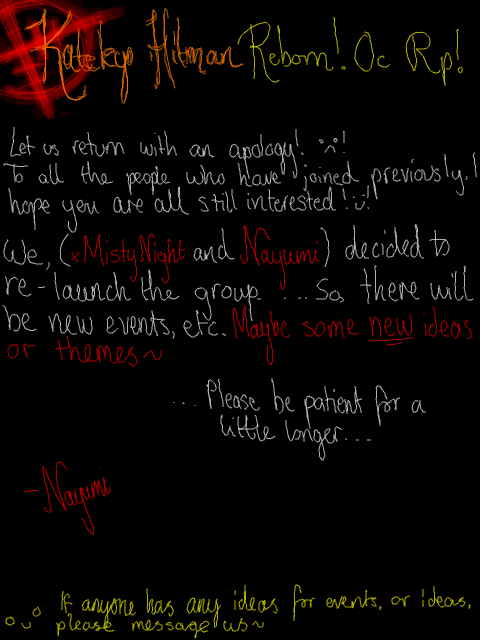 Katekyo Hitman Reborn! Oc Rp!
Let us return with an apology! :)!
To all the people who have joined previously, I
hope you are all still interested! :)!
We, (xMistyNight and Nayumi) decided to
re-launch the group ... So, there will
be new events, etc. Maybe some new ideas
or themes~
... Please be patient for a
little longer...
- Nayumi
If anyone has any ideas for events, or ideas,
please message us~